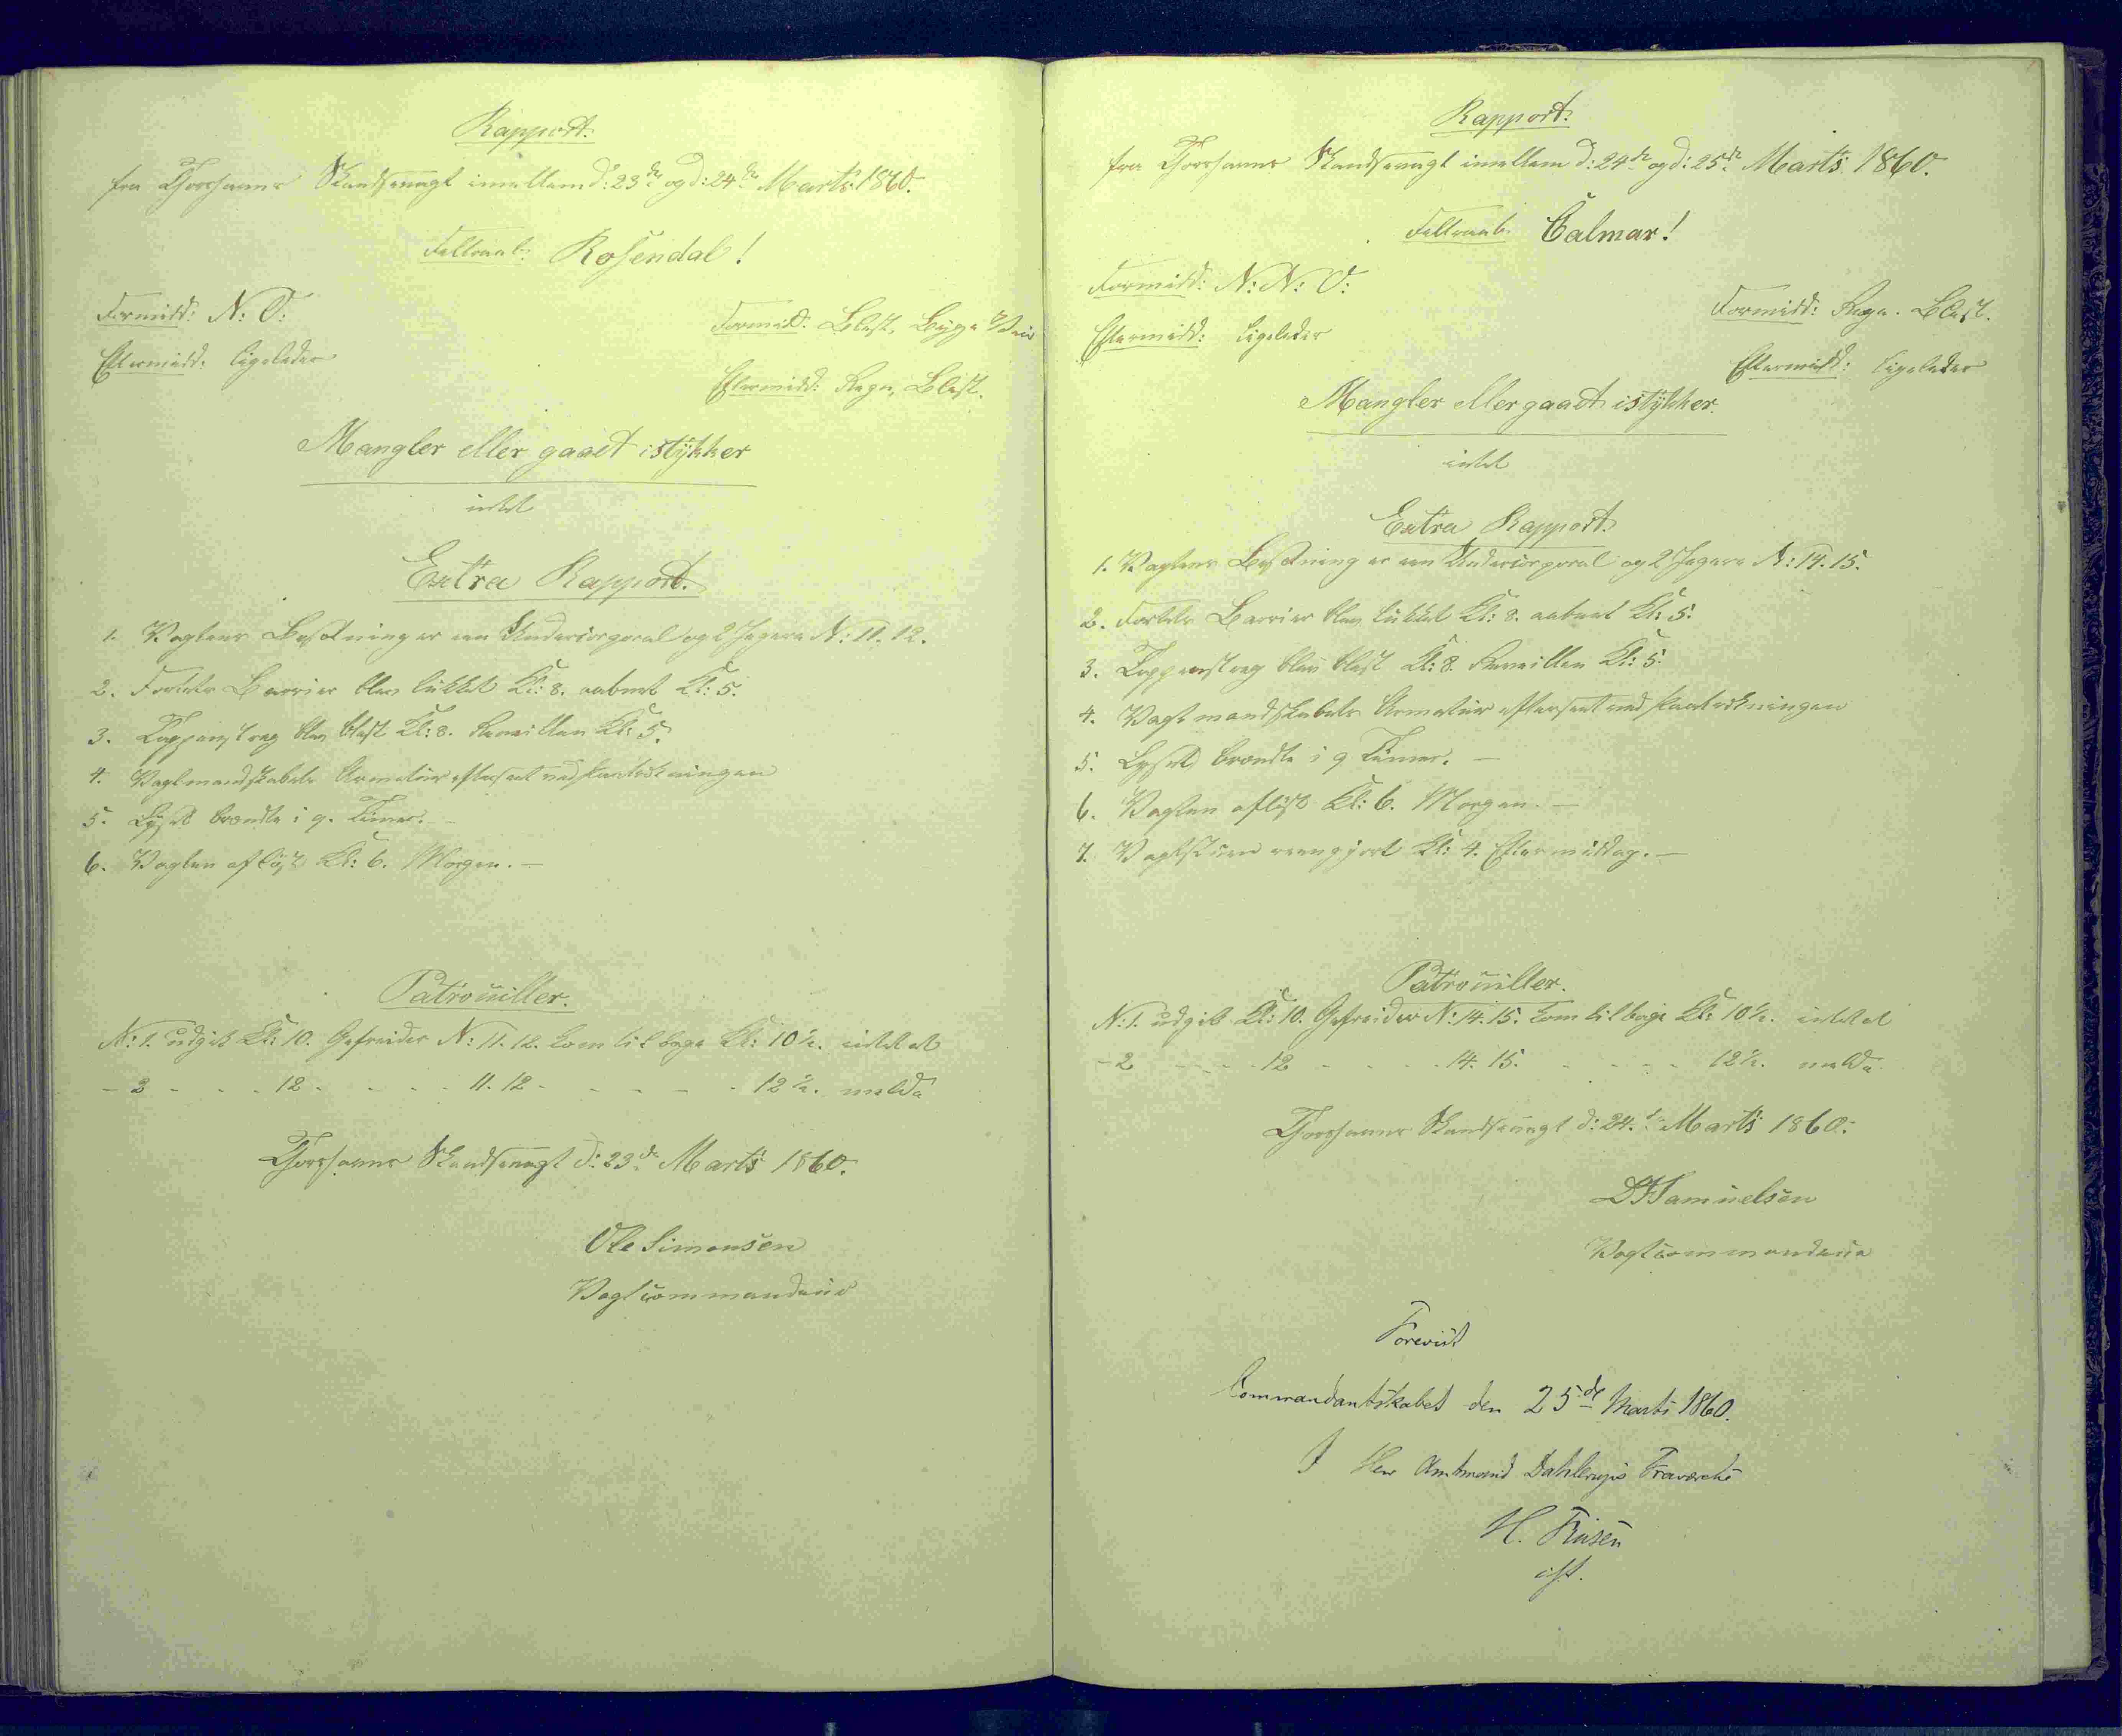 Rapport.
fra Thorshavns Skandsevagt imellem d: 23de og d: 24de Marts: 1860.
Feltraab: Rosendal!
Formidd: N: O:
Eftermidd: ligeledes
Formidd: Blæst, Byge Veir
Eftermidd: Regn, Blæst.
Mangler eller gaaet istÿkker
intet
Extra Rapport.
1. Vagtens Besætning er een Undercorporal og 2 Jegere N: 11. 12.
2. Fortets Barrier blev lukket Kl: 8. aabnet Kl: 5.
3. Tappenstreg blev blæst Kl: 8. Reveillen Kl: 5.
4. Vagtmandskabets Armatur efterseet ved Paatrædningen
5. Lyset brændte i 9. Timer. —
6. Vagten afløst Kl: 6. Morgen. —
Patrouiller.
N: 1. udgik Kl: 10. Gefreider N: 11. 12. kom tilbage Kl: 10½. intet at
- 2 - - - 12 - - - - 11. 12 - - - - - 12½. melde
Thorshavns Skandsevagt d: 23de Marts 1860.
Ole Simonsen
Vagtcommandeur
Rapport.
fra Thorshavns Skandsevagt imellem d: 24de og d: 25de Marts. 1860.
Feltraab. Calmar!
Formidd: N: N: O:
Eftermidd: ligeledes
Formidd: Regn. Blæst.
Eftermidd: ligeledes
Mangler eller gaaet istÿkker.
intet
Extra Rapport.
1. Vagtens Besætning er een Undercorporal og 2 Jegere N: 14. 15.
2. Fortets Barrier blev lukket Kl: 8. aabnet Kl: 5.
3. Tappenstreg blev blæst Kl: 8. Reveillen Kl: 5.
4. Vagtmandskabets Armatur efterseet ved Paatrædningen
5. Lyset brændte i 9 Timer. —
6. Vagten afløst Kl: 6. Morgen. —
7. Vagtstuen reengjort Kl: 4. Eftermiddag. —
Patrouiller.
N: 1. udgik Kl: 10. Gefreider N: 14. 15. kom tilbage Kl: 10½. intet at
- 2 - - - 12 - - - 14. 15. - - - - 12½. melde
Thorshavns Skandsevagt d: 24de Marts 1860.
Samuelsen
Vagtcommandeur
Forevist
Commandantskabet den 25de Marts 1860.
I Herr Amtmand Dahlerups Fraværelse
H.